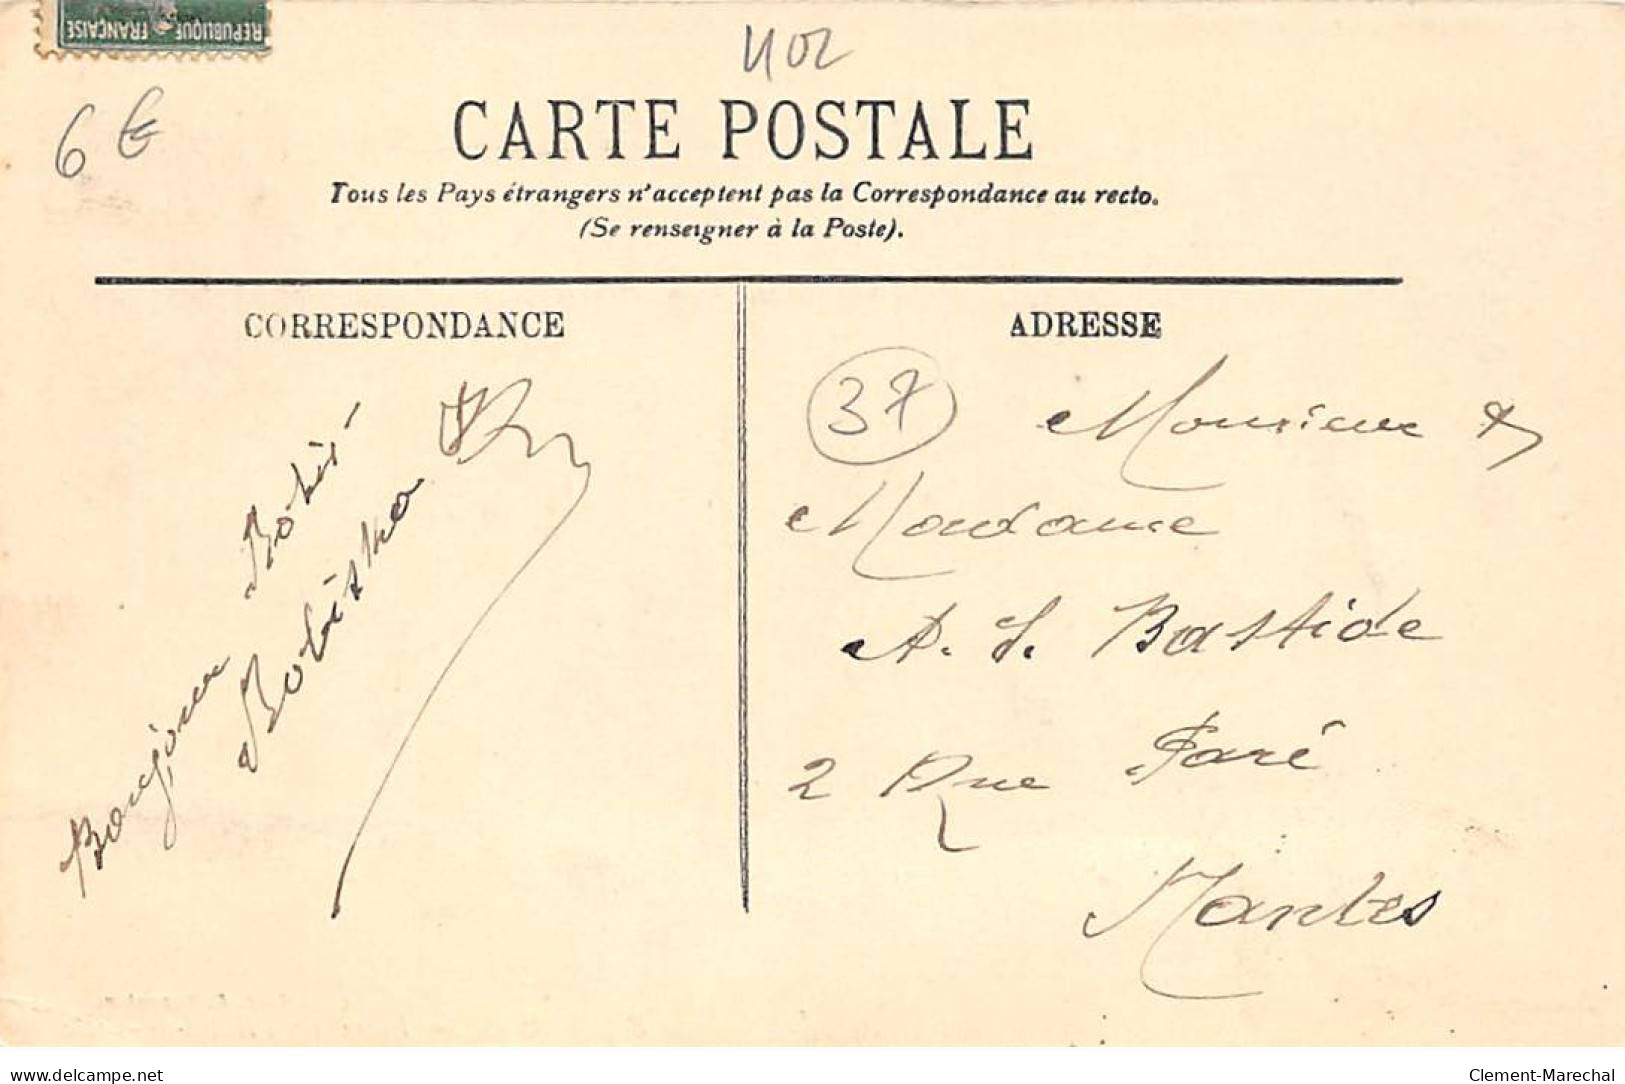 REPUBLIQUE FRANÇAISE
4102
6 €
CARTE POSTALE
Tous les Pays étrangers n'acceptent pas la Correspondance au recto.
(Se renseigner à la Poste).
CORRESPONDANCE
Bonjour
ADRESSE
37
Monsieur &
Madame
A. S. Bastide
2 Rue Paré
Nantes
www.delcampe.net
Clement-Marechal